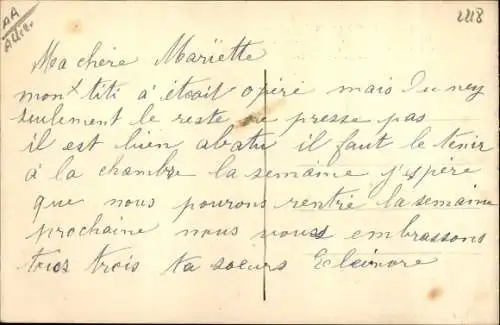 AA
2218
Ma chère Mariette
mon titi à était opéré mais du ney
seulement le reste ne presse pas
il est bien abatu il faut le tenir
à la chambre la semaine j'espère
que nous pourons rentré la semaine
prochaine nous vous embrassons
tous trois ta soeurs Eleinore